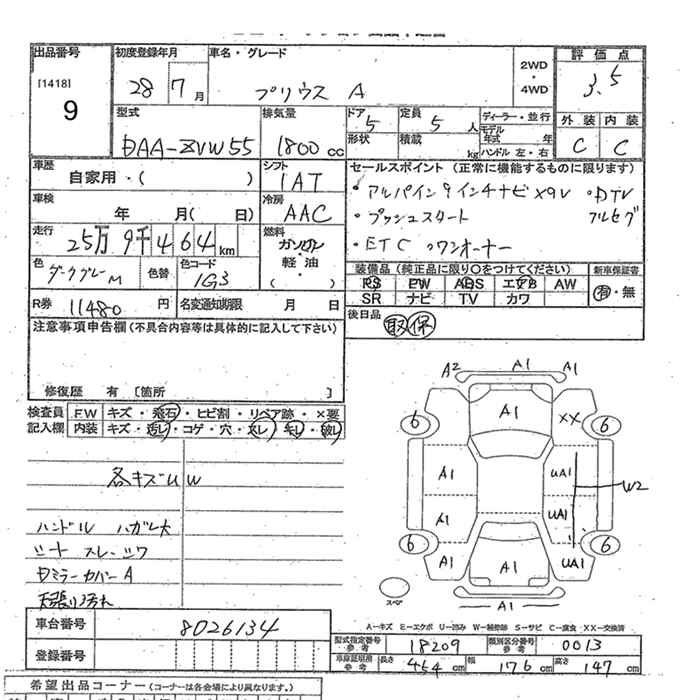 出品番号 初度登録年月 車名・グレード 評価点
[1418] 28 7月 プリウス A 2WD・4WD 3.5
9
型式 排気量 ドア 定員 ディーラー・並行 外装 内装
DAA-ZVW55 1800cc 5 5人 モデル年式 年 C C
形状 積載 kg ハンドル 左・右
車歴 シフト セールスポイント(正常に機能するものに限ります)
自家用・( ) IAT ・アルパイン9インチナビX9V ・DTV
車検 冷房 ・プッシュスタート フルセグ
年 月( 日) AAC ・ETC ・ワンオーナー
走行 燃料
25万9千464km ガソリン・軽油・( )
色 色替 色コード 装備品(純正品に限り○をつけてください) 新車保証書
ダークグレーM 1G3 PS PW ABS エアB AW 有・無
R券 11480円 名変通知期限 月 日 SR ナビ TV カワ
注意事項申告欄(不具合内容等は具体的に記入して下さい) 後日品 取 保
修復歴 有 [箇所 ]
検査員 FW キズ・飛石・ヒビ割・リペア跡・×要
記入欄 内装 キズ・汚レ・コゲ・穴・灰レ・キレ・破レ
A2 A1 A1
A1 XX
6 6
A1 UA1 W2
A1 UA1
6 6
A1 A1 UA1
スペア A1
各キズUW
ハンドル ハガレ大
シート スレ・シワ
ミラーカバーA
天張り汚れ
A-キズ E-エクボ U-凹み W-補修跡 S-サビ C-腐食 XX-交換済
車台番号 8026134
型式指定番号 参考 18209 類別区分番号 参考 0013
登録番号
車庫証明用 参考 長さ 454cm 幅 176cm 高さ 147cm
希望出品コーナー(コーナーは各会場により異なります。)